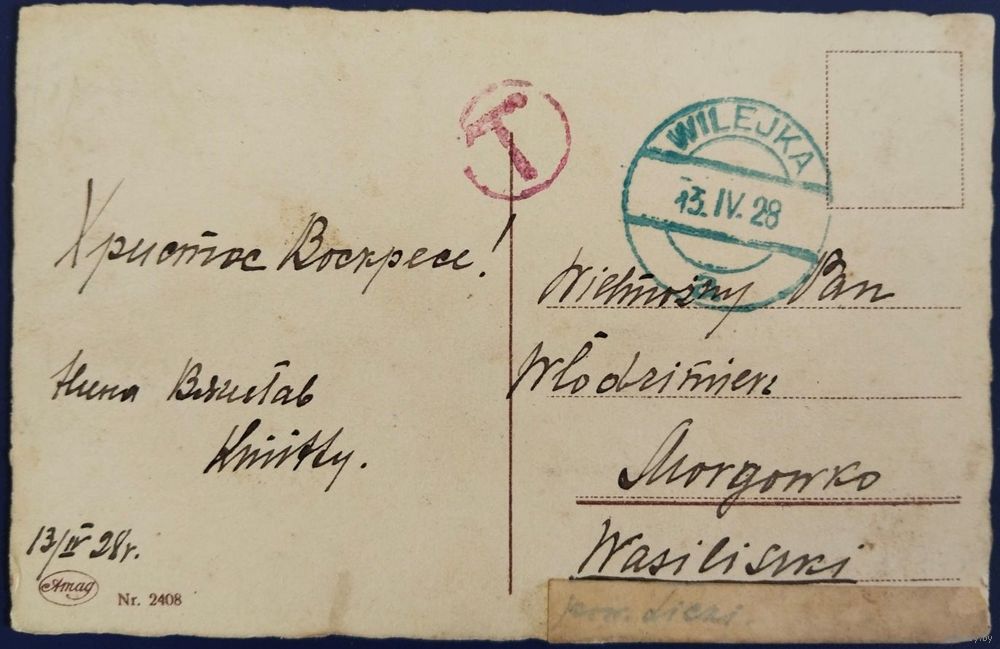 T
WILEJKA
13. IV. 28
Христос Воскресе!
Wielmożny Pan
Włodzimierz
Нина
Morgowko
13/IV 28г.
Wasiliszki
pow. Lidzki.
Amag
Nr. 2408